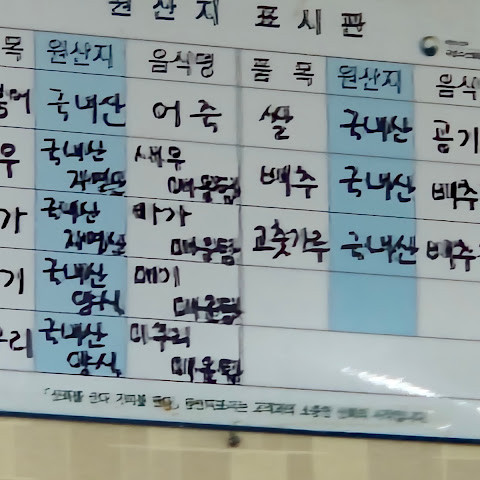 원산지 표시판
목 원산지 음식명 품목 원산지 음식
국내산 어죽 쌀 국내산 공기
우 국내산 자연산 새우 매운탕 배추 국내산 배추
가 국내산 자연산 빠가 매운탕 고춧가루 국내산 배추
기 국내산 양식 메기 매운탕
우리 국내산 양식 미꾸리 매운탕